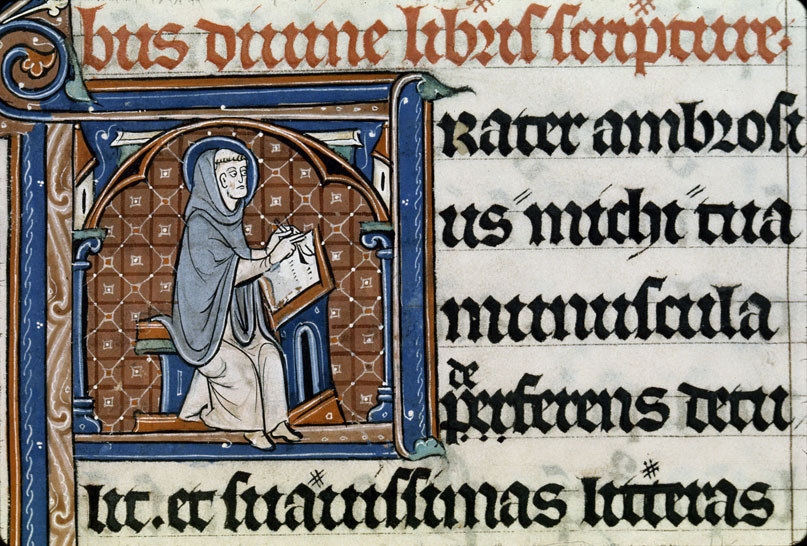 bus diuine libris scripture.
rater ambrosi
us michi tua
munuscula
de
perferens detu
lit. et suauissimas litteras